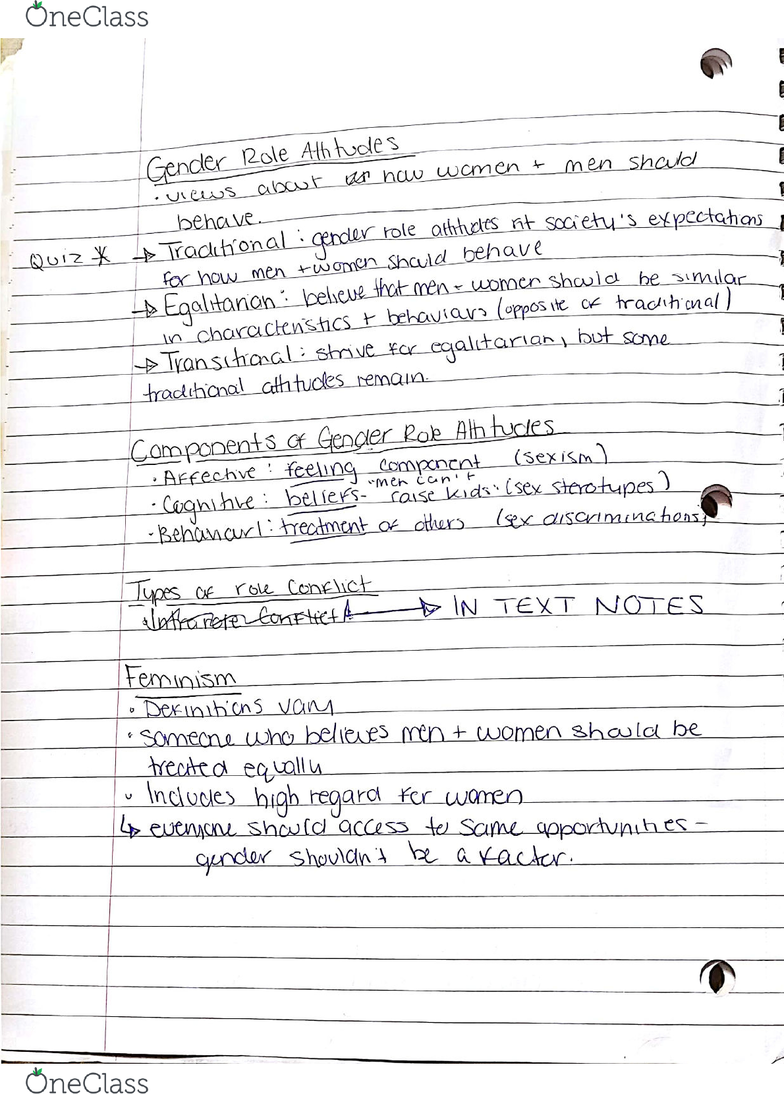 OneClass
Gender Role Attitudes
• views about how women + men should
behave.
QUIZ * → Traditional : gender role attitudes fit society's expectations
for how men + women should behave
→ Egalitarian : believe that men + women should be similar
in characteristics + behaviours (opposite of traditional)
→ Transitional : strive for egalitarian, but some
traditional attitudes remain.
Components of Gender Role Attitudes
• Affective : feeling component (sexism)
"men can't
• Cognitive : beliefs - raise kids" (sex sterotypes)
• Behaviourl : treatment of others (sex discriminations)
Types of role Conflict
• Intrarole Conflict → IN TEXT NOTES
Feminism
• Definitions vary
• someone who believes men + women should be
treated equally
• Includes high regard for women
↳ everyone should access to same opportunities -
gender shouldn't be a factor.
OneClass